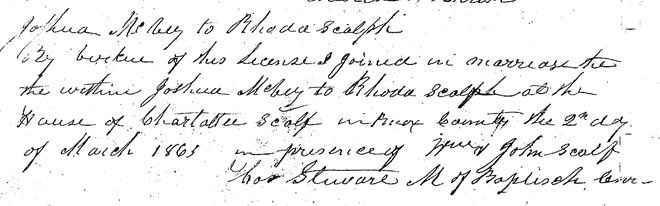 Joshua McVey to Rhoda Scalph
By virtue of this License I joined in marriage the
the within Joshua McVey to Rhoda Scalph at the
House of Charlottee Scalf in Knox County the 2nd day
of March 1865 in presence of John Scalf
Thos Stewart M of Baptisch